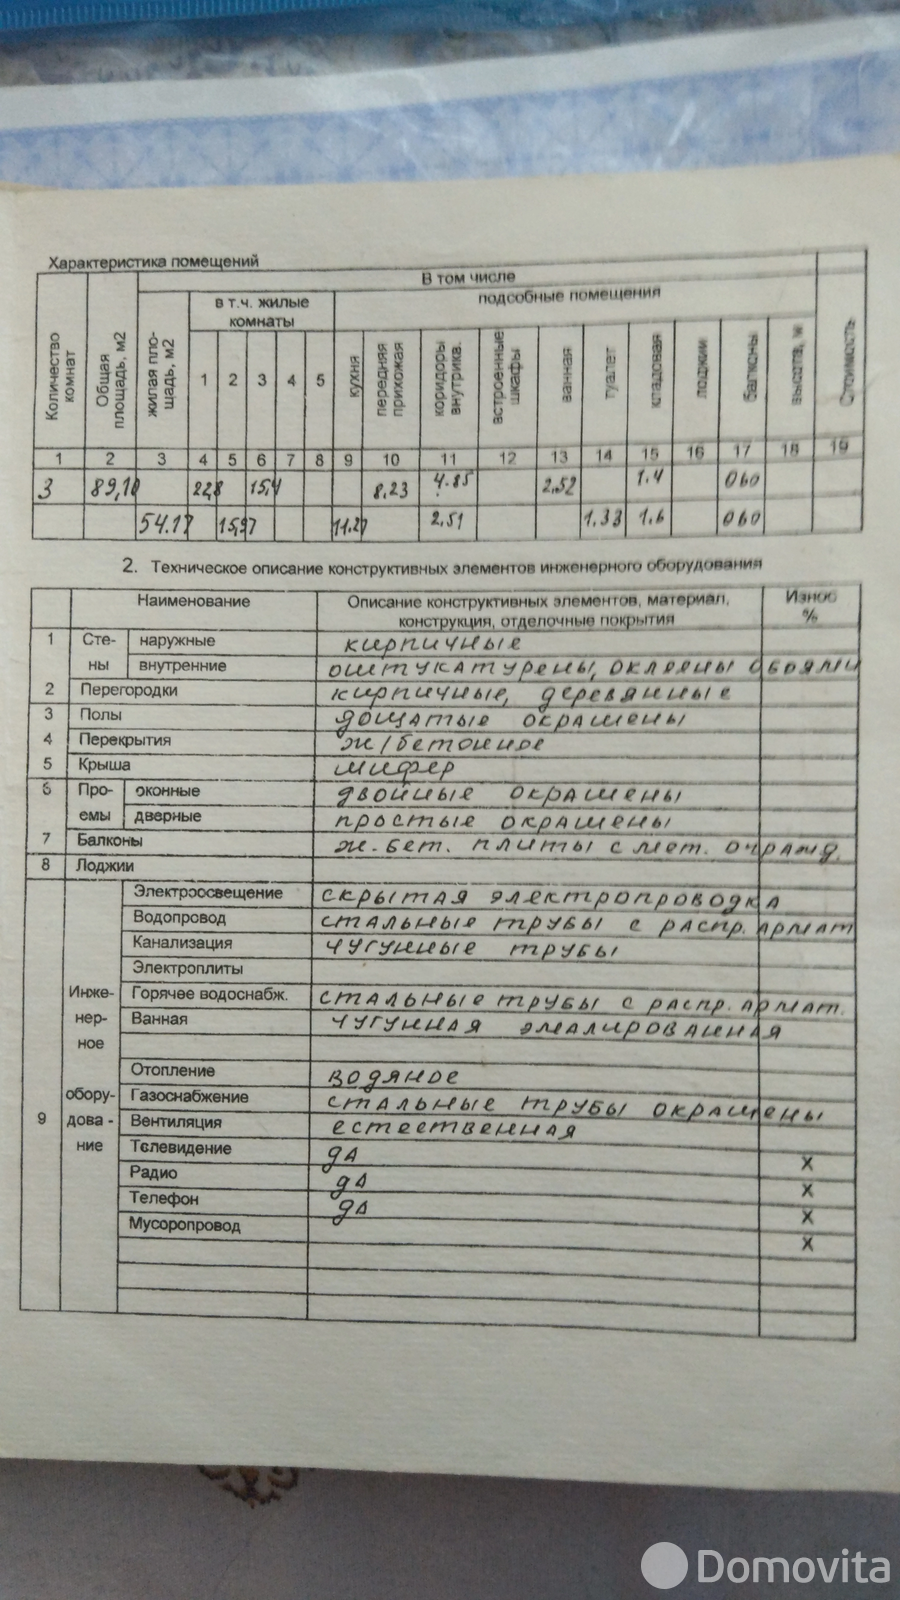 Характеристика помещений
Количество комнат
Общая площадь, м2
В том числе
жилая пло-щадь, м2
в т.ч. жилые комнаты
подсобные помещения
1 2 3 4 5
кухня
передняя прихожая
коридоры внутрикв.
встроенные шкафы
ванная
туалет
кладовая
лоджии
балконы
высота, м
Стоимость
1 2 3 4 5 6 7 8 9 10 11 12 13 14 15 16 17 18 19
3 89,10 22,8 15,4 8,23 4.85 2,52 1.4 060
54.17 15,97 11.27 2,51 1.33 1.6 060
2. Техническое описание конструктивных элементов инженерного оборудования
Наименование Описание конструктивных элементов, материал, Износ
конструкция, отделочные покрытия %
1 Сте- наружные кирпичные
ны внутренние оштукатурены, оклеены обоями
2 Перегородки кирпичные, деревянные
3 Полы дощатые окрашены
4 Перекрытия ж/бетонное
5 Крыша шифер
6 Про- оконные двойные окрашены
емы дверные простые окрашены
7 Балконы ж.бет. плиты с мет. огражд.
8 Лоджии
Электроосвещение скрытая электропроводка
Водопровод стальные трубы с распр. армат
Канализация чугунные трубы
Электроплиты
Инже- Горячее водоснабж. стальные трубы с распр. армат.
нер- Ванная чугунная эмалированная
ное
Отопление водяное
обору- Газоснабжение стальные трубы окрашены
9 дова - Вентиляция естественная
ние Телевидение да X
Радио да X
Телефон да X
Мусоропровод X
Domovita